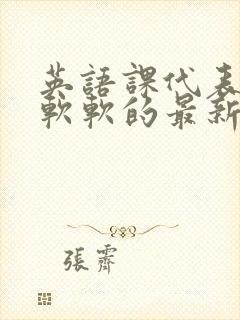 英語課代表
軟軟的最新
張霽